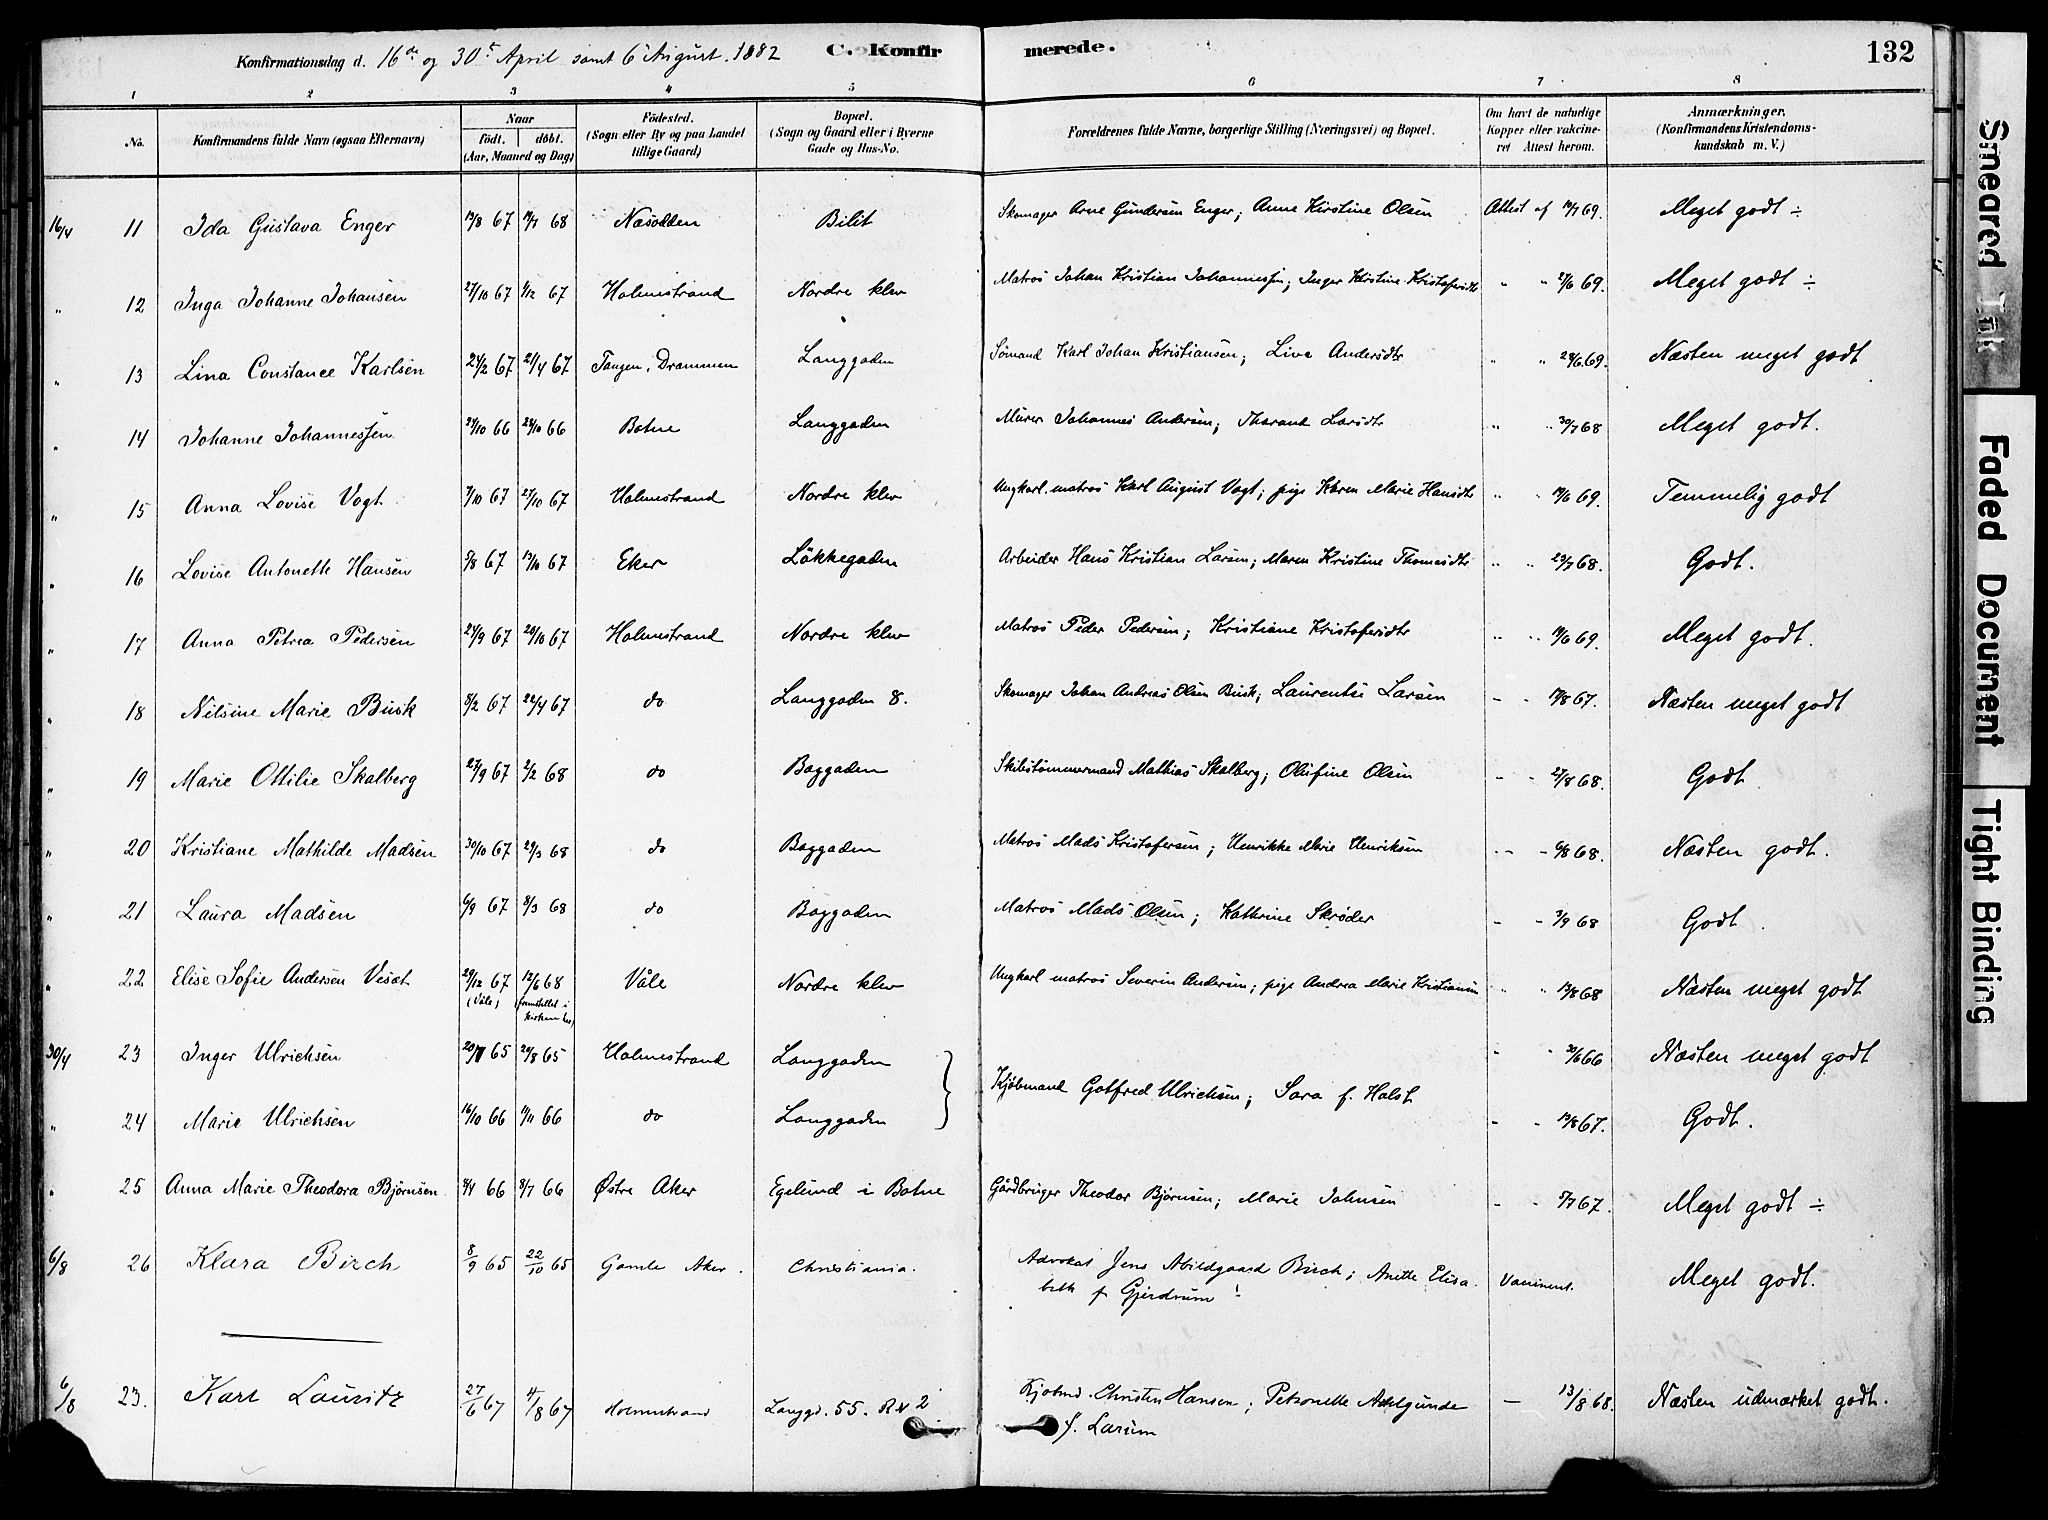 Konfirmationsdag d. 16de og 30te April samt 6 August. 1882 C. Konfirmerede. 132
1 2 3 4 5 6 7 8
No. Konfirmandens fulde Navn (ogsaa Efternavn) Naar födt. döbt. (Aar, Maaned og Dag) Födested. (Sogn eller By og paa Landet tillige Gaard) Bopæl. (Sogn og Gaard eller i Byerne Gade og Hus-No. Forældrenes fulde Navne, borgerlige Stilling (Næringsvei) og Bopæl. Om havt de naturlige Kopper eller vakcineret Attest herom. Anmærkninger. (Konfirmandens Kristendomskundskab m. V.)
16/4 11 Ida Gustava Enger 19/8 67 68 Næsodden Bilit Skomager Arne Gundersen Enger; Anne Kirstine Olsen Attest af 69. Meget godt ÷
" 12 Inga Johanne Johansen 27/10 67 1/12 67 Holmestrand Nordre klev Matros Johan Kristian Johannessen; Inger Kirstine Kristofersdtr " " 69. Meget godt ÷
" 13 Lina Constance Karlsen 24/2 67 21/4 67 Tangen, Drammen Langgaden Sömand Karl Johan Kristiansen; Live Andersdtr " " 69. Næsten meget godt
" 14 Johanne Johannessen 66 28/10 66 Botne Langgaden Murer Johannes Andersen; Larsdtr " " 30/7 68 Meget godt.
" 15 Anna Lovise Vogt 7/10 67 27/10 67 Holmestrand Nordre klev Ungkarl. matros Karl August Vogt; pige Karen Marie Hansdtr " " 69. Temmelig godt
" 16 Lovise Antonette Hansen 5/8 67 13/10 67 Eker Lökkegaden Arbeider Hans Kristian Larsen; Maren Kristine Thomesdtr " " 23/7 68. Godt.
" 17 Anna Petrea Pedersen 67 20/10 67 Holmestrand Nordre klev Matros Peder Pedersen; Kristiane Kristofersdtr " " 69. Meget godt.
" 18 Nilsine Marie Busk 8/2 67 22/4 67 do Langgaden 8. Skomager Johan Andreas Olsen Busk; Laurentse Larsen - - 67. Næsten meget godt
" 19 Marie Ottilie Skalberg 27/9 67 2/2 68 do Baggaden Skibstömmermand Mathias Skalberg; Olufine Olsen - - 68. Godt
" 20 Kristiane Mathilde Madsen 30/10 67 29/3 68 do Baggaden Matros Mads Kristofersen; Henrikke Marie Henriksen - - 68. Næsten godt.
" 21 Laura Madsen 6/9 67 8/3 68 do Baggaden Matros Mads Olsen; Kathrine Skrøder - - 3/9 68 Godt
" 22 Elise Sofie Andersen Vesæt 29/12 67 (Våle) 12/6 68 (fremstillet i kirken her) Våle Nordre klev Ungkarl matros Severin Andersen; pige Andrea Marie Kristiansen " " 68 Næsten meget godt
30/4 23 Inger Ulrichsen 65 65 Holmestrand Langgaden " " 30/6 66 Næsten meget godt
Kjöbmand Gotfred Ulrichsen; Sara f. Holst
" 24 Marie Ulrichsen 16/10 66 66 do Langgaden - - 67. Godt.
" 25 Anna Marie Theodora Bjørnsen 66 8/7 66 Østre Aker Egelund i Botne Gårdbruger Theodor Bjørnsen; Marie Johnsen - - 5/7 67. Meget godt ÷
6/8 26 Klara Birch 8/9 65 22/10 65 Gamle Aker. Christiania. Advokat Jens Abildgaard Birch; Anette Elisabeth f Gjerdrum Vaccineret. Meget godt.
6/8 23. Karl Lauritz 27/6 67 4/8 67 Holmestrand Langgd. 55. R № 2 Kjöbmd. Christen Hansen; Petronelle Adelgunde f. Larsen — 13/8 68. Næsten udmærket godt.
Smeared Ink
Faded Document
Tight Binding